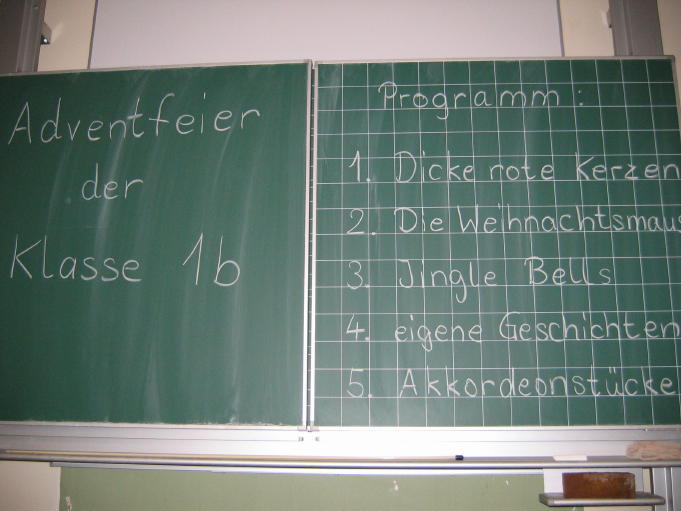 Adventfeier
der
Klasse 1b
Programm:
1. Dicke rote Kerzen
2. Die Weihnachtsmaus
3. Jingle Bells
4. eigene Geschichten
5. Akkordeonstücke